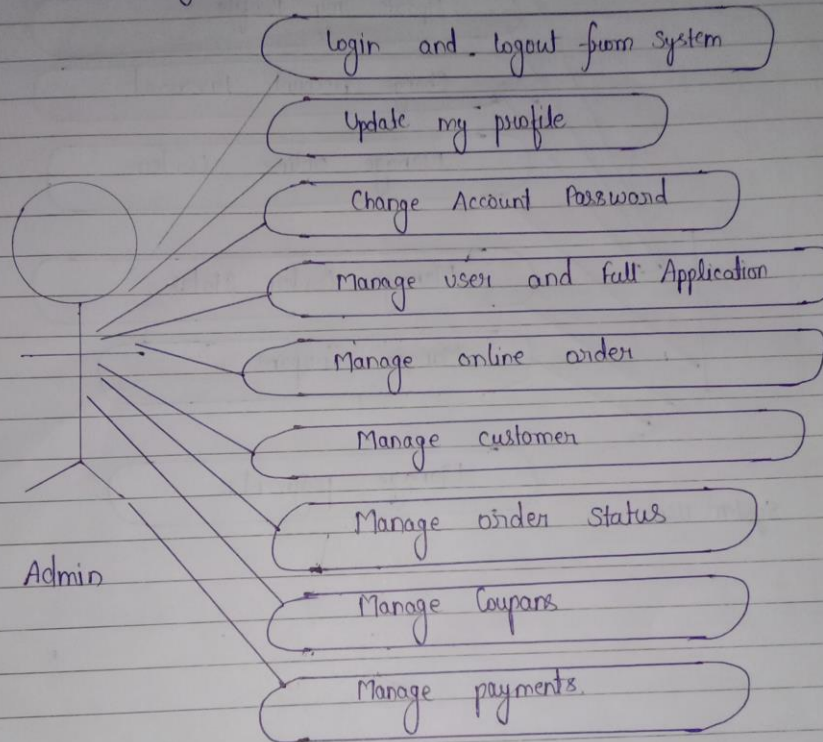 Login and logout from system
Update my profile
Change Account Password
Manage user and full Application
Manage online order
Manage customer
Manage order status
Admin
Manage Coupans
Manage payments.